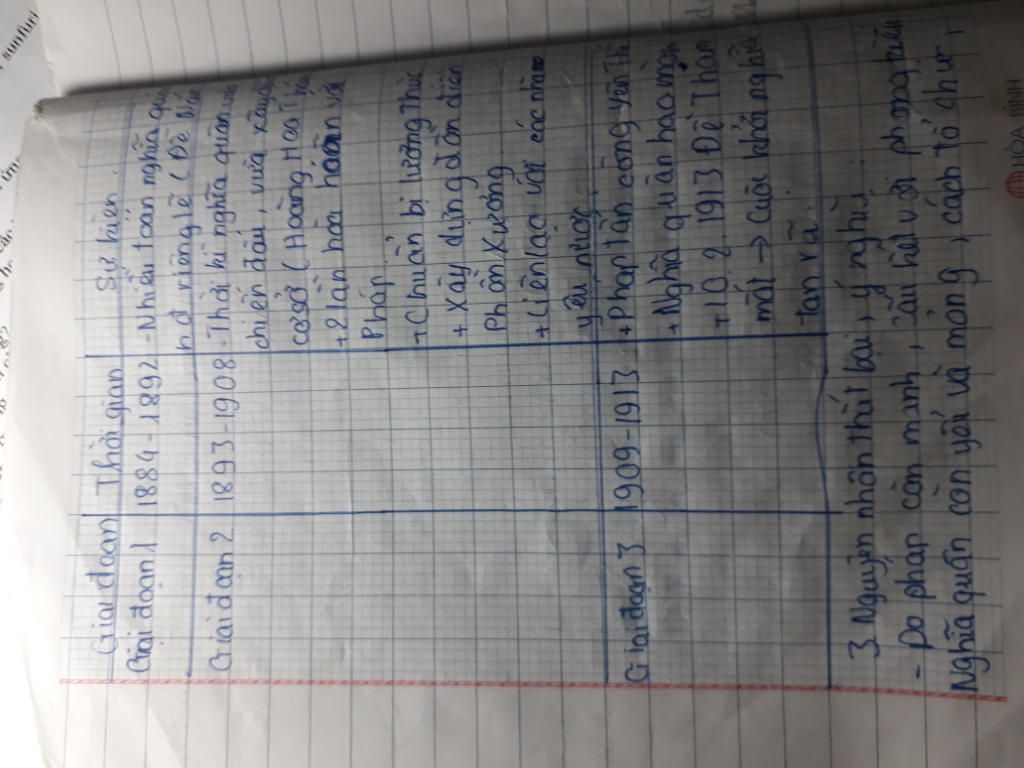 Giai đoạn Thời gian Sự kiện
Giai đoạn 1 1884-1892 - Nhiều toán nghĩa quân
hđ riêng lẻ (Đề Nắm
Giai đoạn 2 1893-1908 - Thời kì nghĩa quân vừa
chiến đấu, vừa xây dựng
cơ sở (Hoàng Hoa Thám
+ 2 lần hòa hoãn với
Pháp
+ Chuẩn bị lương thực
+ Xây dựng đồn điền
Phồn Xương
+ Liên lạc với các nhà
yêu nước
Giai đoạn 3 1909-1913 + Pháp tấn công Yên Thế
+ Nghĩa quân hao mòn
+ 10.2.1913 Đề Thám
mất → Cuộc khởi nghĩa
tan rã.
3 Nguyên nhân thất bại, ý nghĩa
- Do pháp còn mạnh, câu kết với phong kiến
Nghĩa quân còn yếu và mỏng, cách tổ chức,
HÒA BÌNH
sunfuri